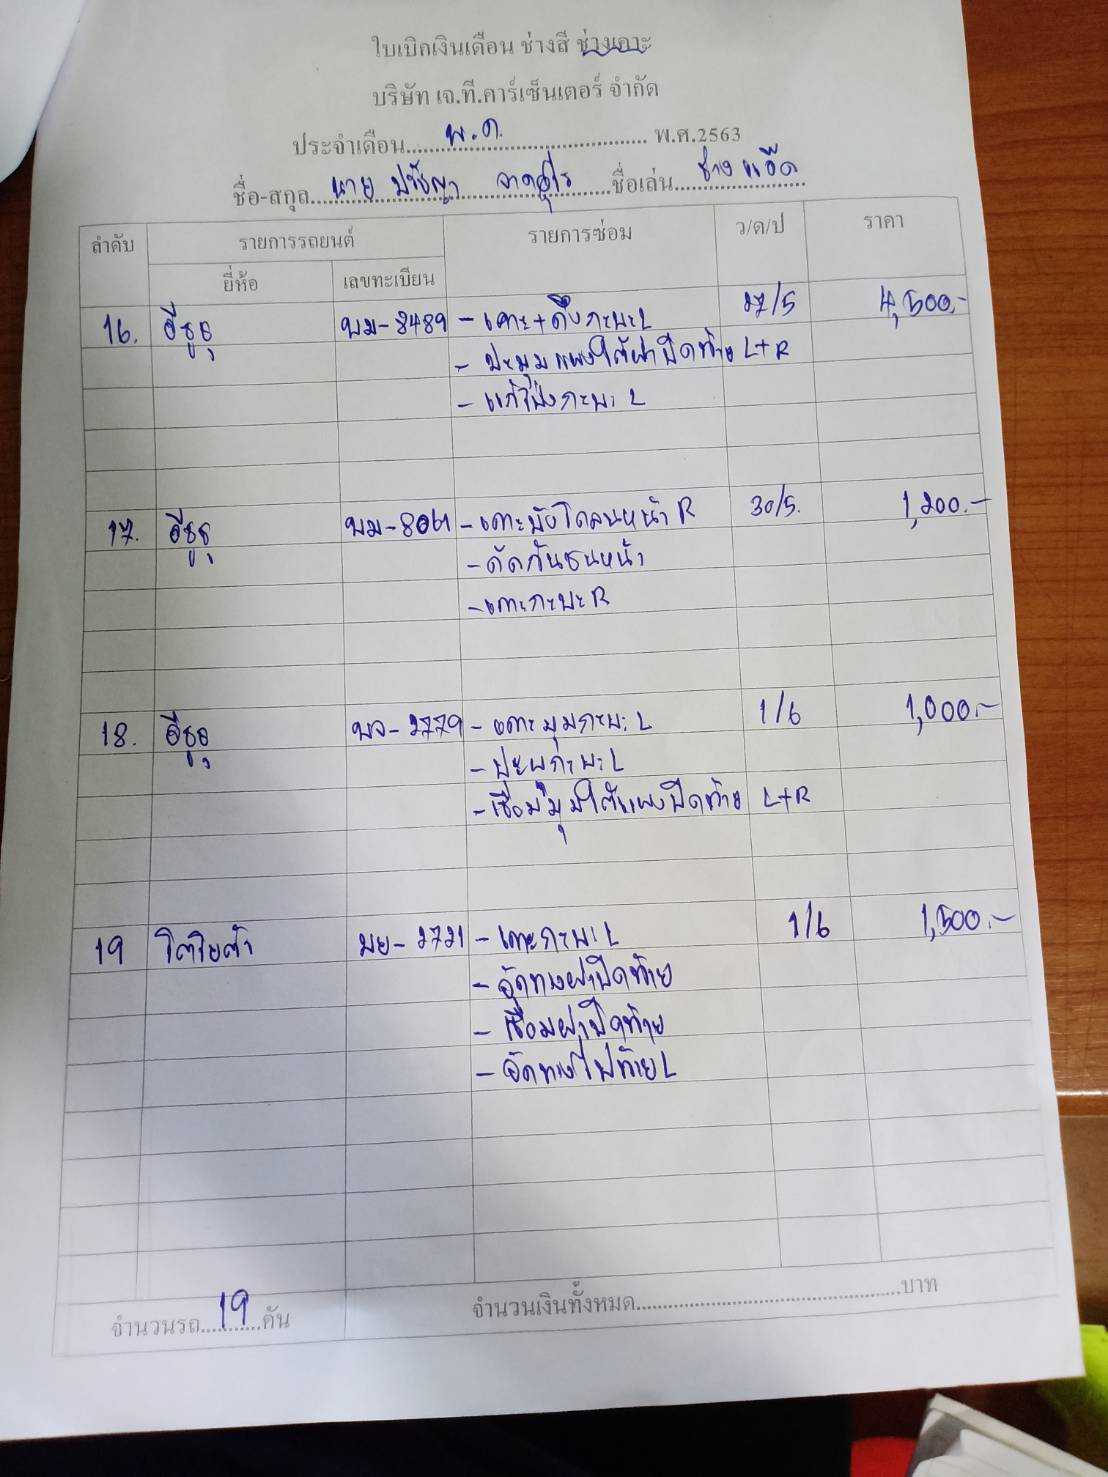 ใบเบิกเงินเดือน ช่างสี ช่างเคาะ
บริษัท เจ.ที.คาร์เซ็นเตอร์ จำกัด
ประจำเดือน.....พ.ค......พ.ศ.2563
ชื่อ-สกุล...นาย ปรัชญา.....ชื่อเล่น...ช่าง แอ๊ด
ลำดับ รายการรถยนต์ รายการซ่อม ว/ด/ป ราคา
ยี่ห้อ เลขทะเบียน
16. อีซูซุ ผม-8489 - เคาะ+ดึงกะบะ L 27/5 4,500.-
- ปะมุมแผงใต้ฝาปิดท้าย L+R
- แก้โป่งกะบะ L
17. อีซูซุ - เคาะบังโคลนหน้า R 30/5. 1,200.-
- ดัดกันชนหน้า
- เคาะกะบะ R
18. อีซูซุ - เคาะมุมกะบะ L 1/6 1,000.-
- ปะผุกะบะ L
- เชื่อมมุมใต้แผงปิดท้าย L+R
19 โตโยต้า ผย-2721 - เคาะกะบะ L 1/6 1,500.-
- จัดทางฝาปิดท้าย
- เชื่อมฝาปิดท้าย
- จัดทางไฟท้าย L
จำนวนรถ...19...คัน จำนวนเงินทั้งหมด...............บาท